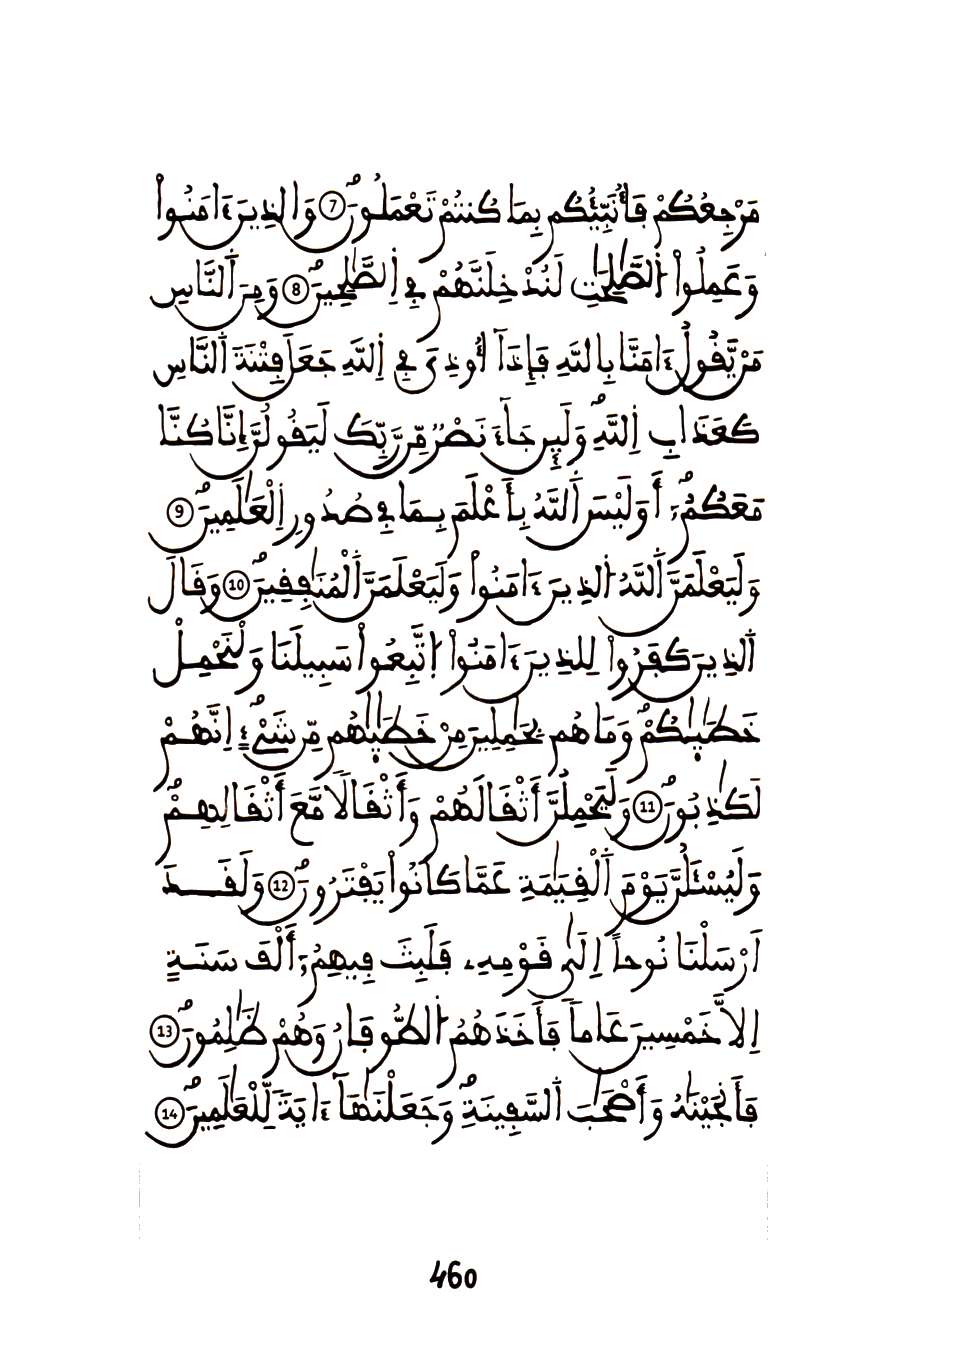 مَرْجِعُكُمْ فَأُنَبِّئُكُم بِمَا كُنتُمْ تَعْمَلُونَۖ 7 وَالذِينَ ءَامَنُواْ
وَعَمِلُواْ اُلصَّٰلِحَٰتِ لَنُدْخِلَنَّهُمْ فِے اِلصَّٰلِحِينَۖ 8 وَمِنَ اَلنَّاسِ
مَنْ يَّقُولُ ءَامَنَّا بِاللَّهِ فَإِذَآ أُوذِيَ فِے اِللَّهِ جَعَلَ فِتْنَةَ اَلنَّاسِ
كَعَذَابِ اِللَّهِۖ وَلَئِن جَآءَ نَصْرٌ مِّن رَّبِّكَ لَيَقُولُنَّ إِنَّا كُنَّا
مَعَكُمُۥٓۖ أَوَلَيْسَ اَللَّهُ بِأَعْلَمَ بِمَا فِے صُدُورِ اِلْعَٰلَمِينَۖ 9
وَلَيَعْلَمَنَّ اَللَّهُ اُلذِينَ ءَامَنُواْ وَلَيَعْلَمَنَّ اَلْمُنَٰفِقِينَۖ 10 وَقَالَ
اَلذِينَ كَفَرُواْ لِلذِينَ ءَامَنُواْ اُتَّبِعُواْ سَبِيلَنَا وَلْنَحْمِلْ
خَطَٰيَٰكُمْۖ وَمَا هُم بِحَٰمِلِينَ مِنْ خَطَٰيَٰهُم مِّن شَيْءٍۖ اِنَّهُمْ
لَكَٰذِبُونَۖ 11 وَلَيَحْمِلُنَّ أَثْقَالَهُمْ وَأَثْقَالاٗ مَّعَ أَثْقَالِهِمْۖ
وَلَيُسْـَٔلُنَّ يَوْمَ اَلْقِيَٰمَةِ عَمَّا كَانُواْ يَفْتَرُونَۖ 12 وَلَقَدَ
اَرْسَلْنَا نُوحاً اِلَيٰ قَوْمِهِۦ فَلَبِثَ فِيهِمُۥٓ أَلْفَ سَنَةٍ
اِلاَّ خَمْسِينَ عَاماٗ فَأَخَذَهُمُ اُلطُّوفَانُ وَهُمْ ظَٰلِمُونَۖ 13
فَأَنجَيْنَٰهُ وَأَصْحَٰبَ اَلسَّفِينَةِۖ وَجَعَلْنَٰهَآ ءَايَةٗ لِّلْعَٰلَمِينَۖ 14
460